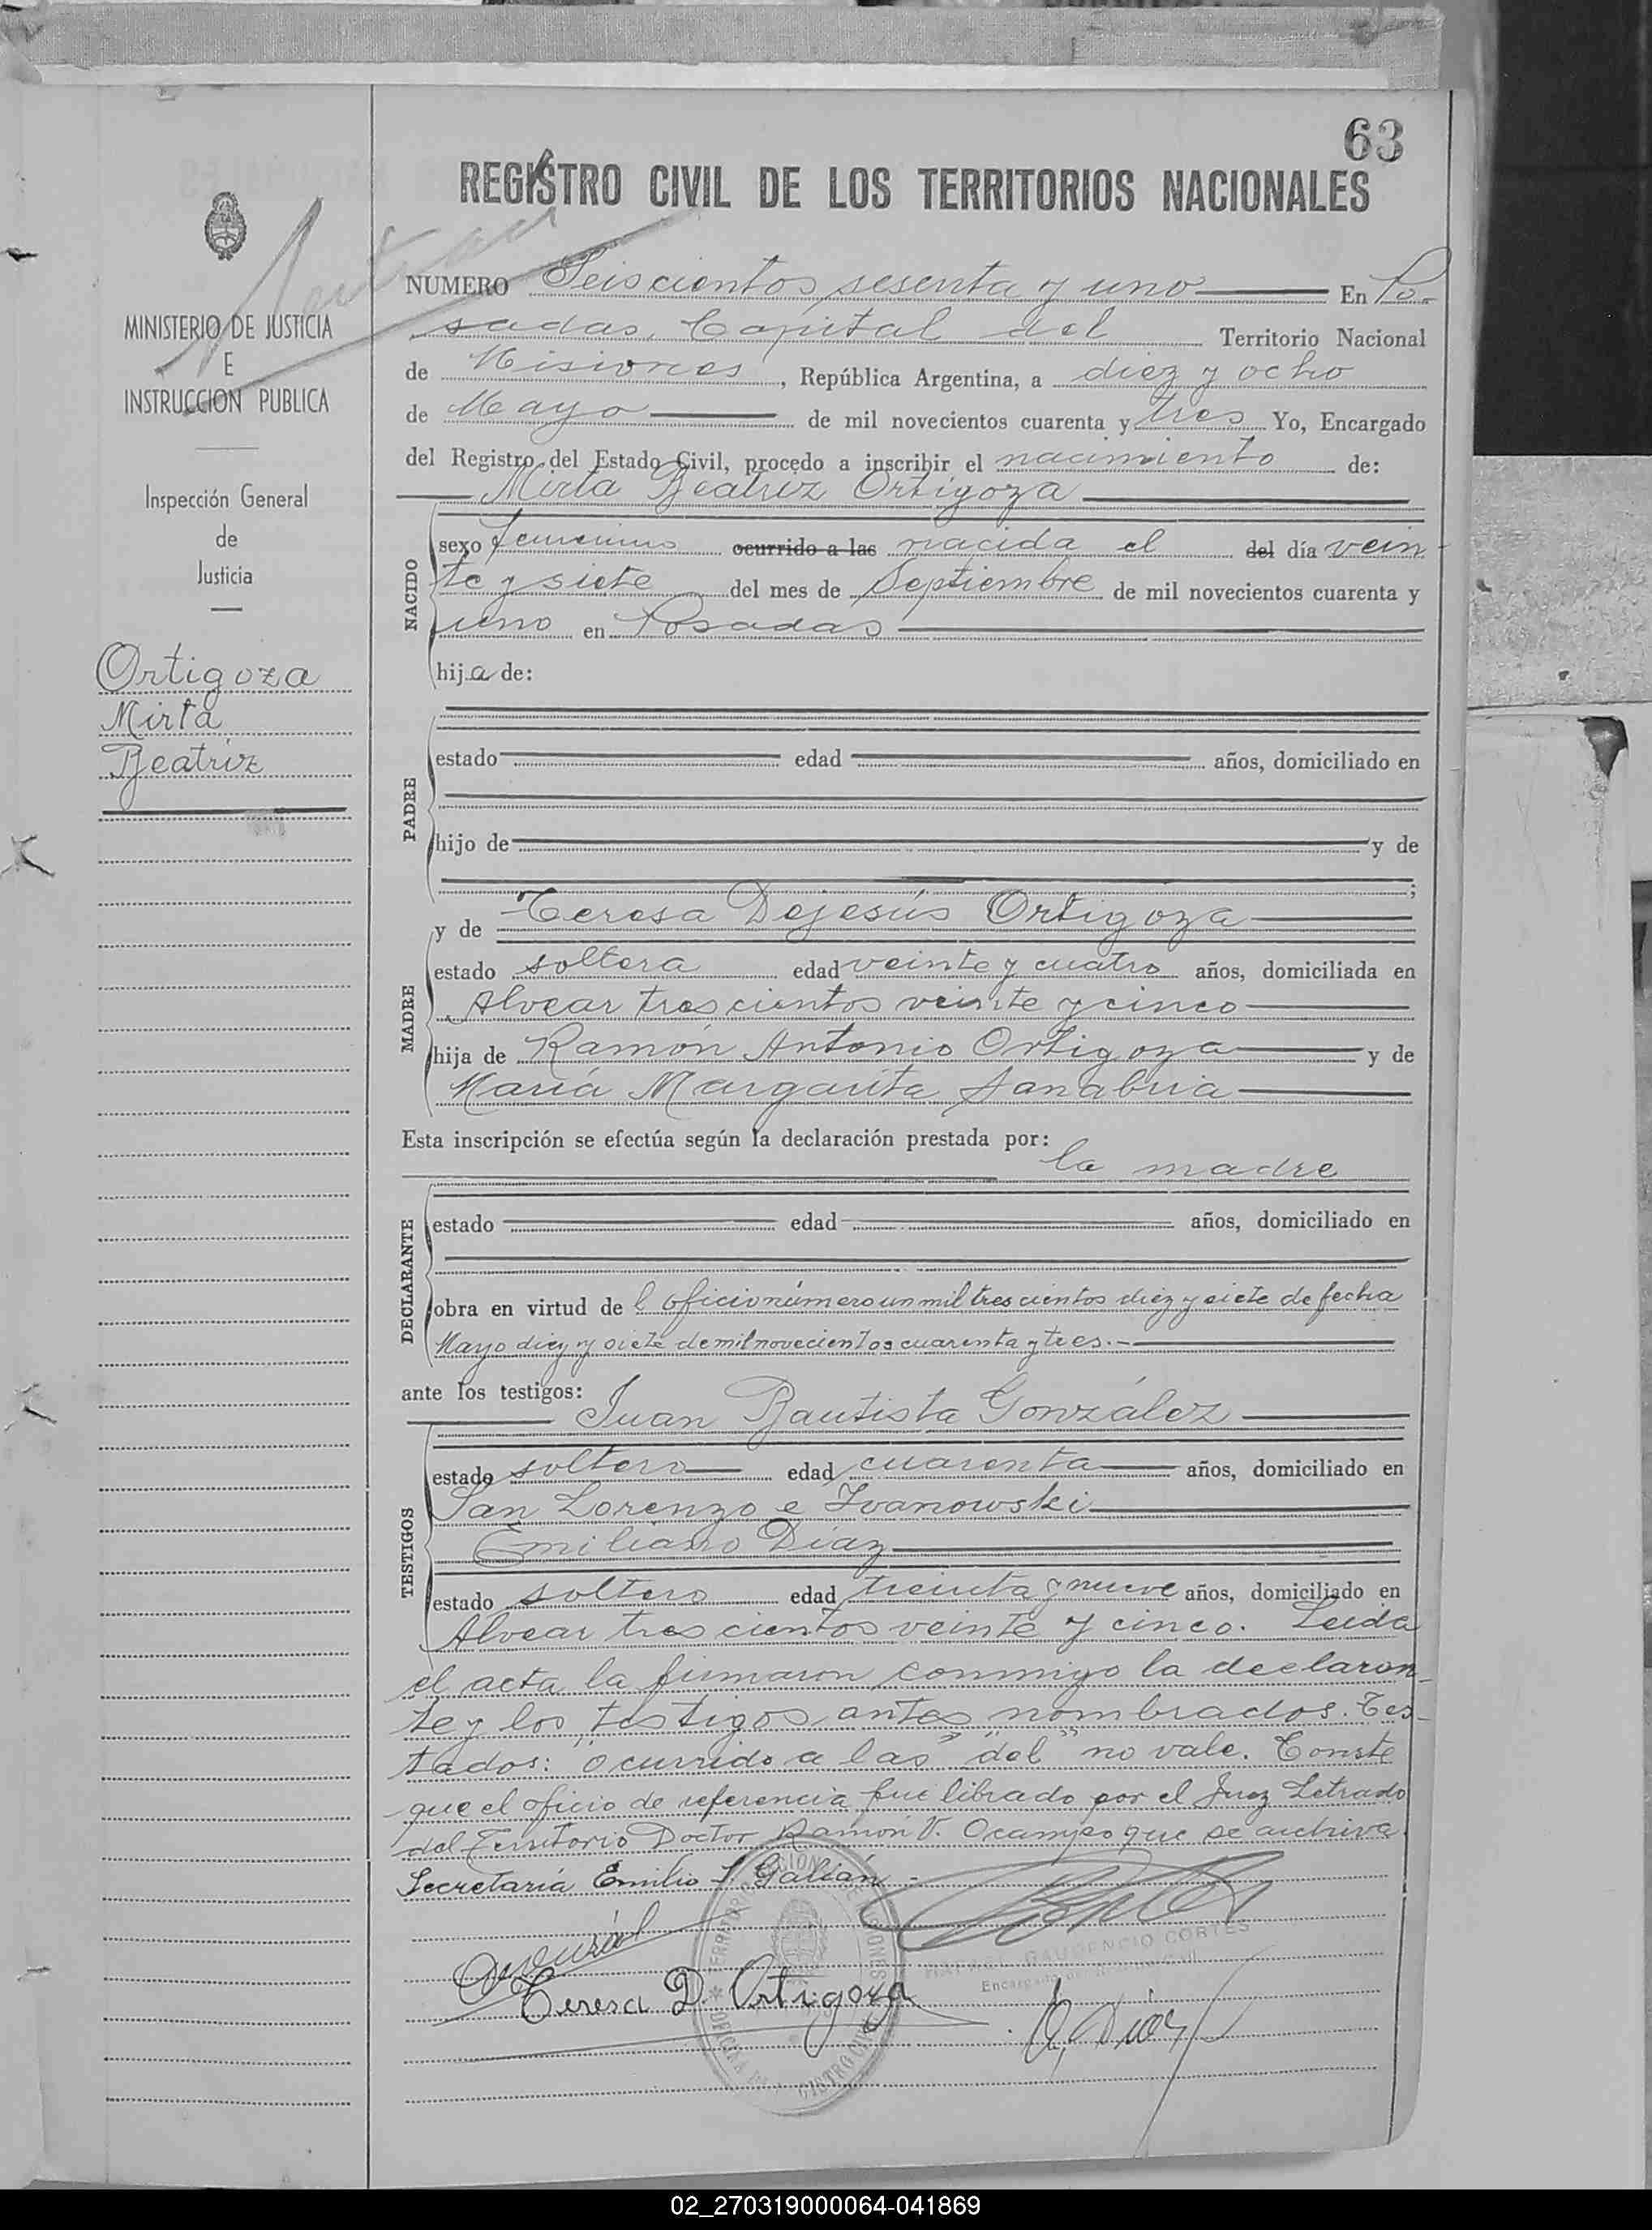 63
REGISTRO CIVIL DE LOS TERRITORIOS NACIONALES
MINISTERIO DE JUSTICIA
E
INSTRUCCION PUBLICA
Inspección General
de
Justicia
Ortigoza
Mirta
Beatriz
NUMERO Seiscientos sesenta y uno En Po-
sadas, Capital del Territorio Nacional
de Misiones, República Argentina, a diez y ocho
de Mayo de mil novecientos cuarenta y tres Yo, Encargado
del Registro del Estado Civil, procedo a inscribir el nacimiento de:
Mirta Beatriz Ortigoza
NACIDO
sexo femenino ocurrido a las nacida el del día vein-
te y siete del mes de Septiembre de mil novecientos cuarenta y
uno en Posadas
hija de:
PADRE
estado edad años, domiciliado en
hijo de y de
;
MADRE
y de Teresa Dejesús Ortigoza
estado soltera edad veinte y cuatro años, domiciliada en
Alvear trescientos veinte y cinco
hija de Ramón Antonio Ortigoza y de
María Margarita Sanabria
Esta inscripción se efectúa según la declaración prestada por:
la madre
DECLARANTE
estado edad años, domiciliado en
obra en virtud de l oficio número un mil trescientos diez y siete de fecha
Mayo diez y siete de mil novecientos cuarenta y tres.-
ante los testigos:
Juan Bautista González
TESTIGOS
estado soltero edad cuarenta años, domiciliado en
San Lorenzo e Ivanowski
Emiliano Díaz
estado soltero edad treinta y nueve años, domiciliado en
Alvear trescientos veinte y cinco. Leida
el acta la firmaron conmigo la declaran-
te y los testigos antes nombrados. Tes-
tados: "ocurrido a las" "del" no vale. Conste
que el oficio de referencia fue librado por el Juez Letrado
del Territorio Doctor Ramón V. Ocampo que se archiva.
Secretaría Emilio J. Galián.-
GAUDENCIO CORTES
Encargado
Teresa D. Ortigoza
E. Díaz
02_270319000064-041869